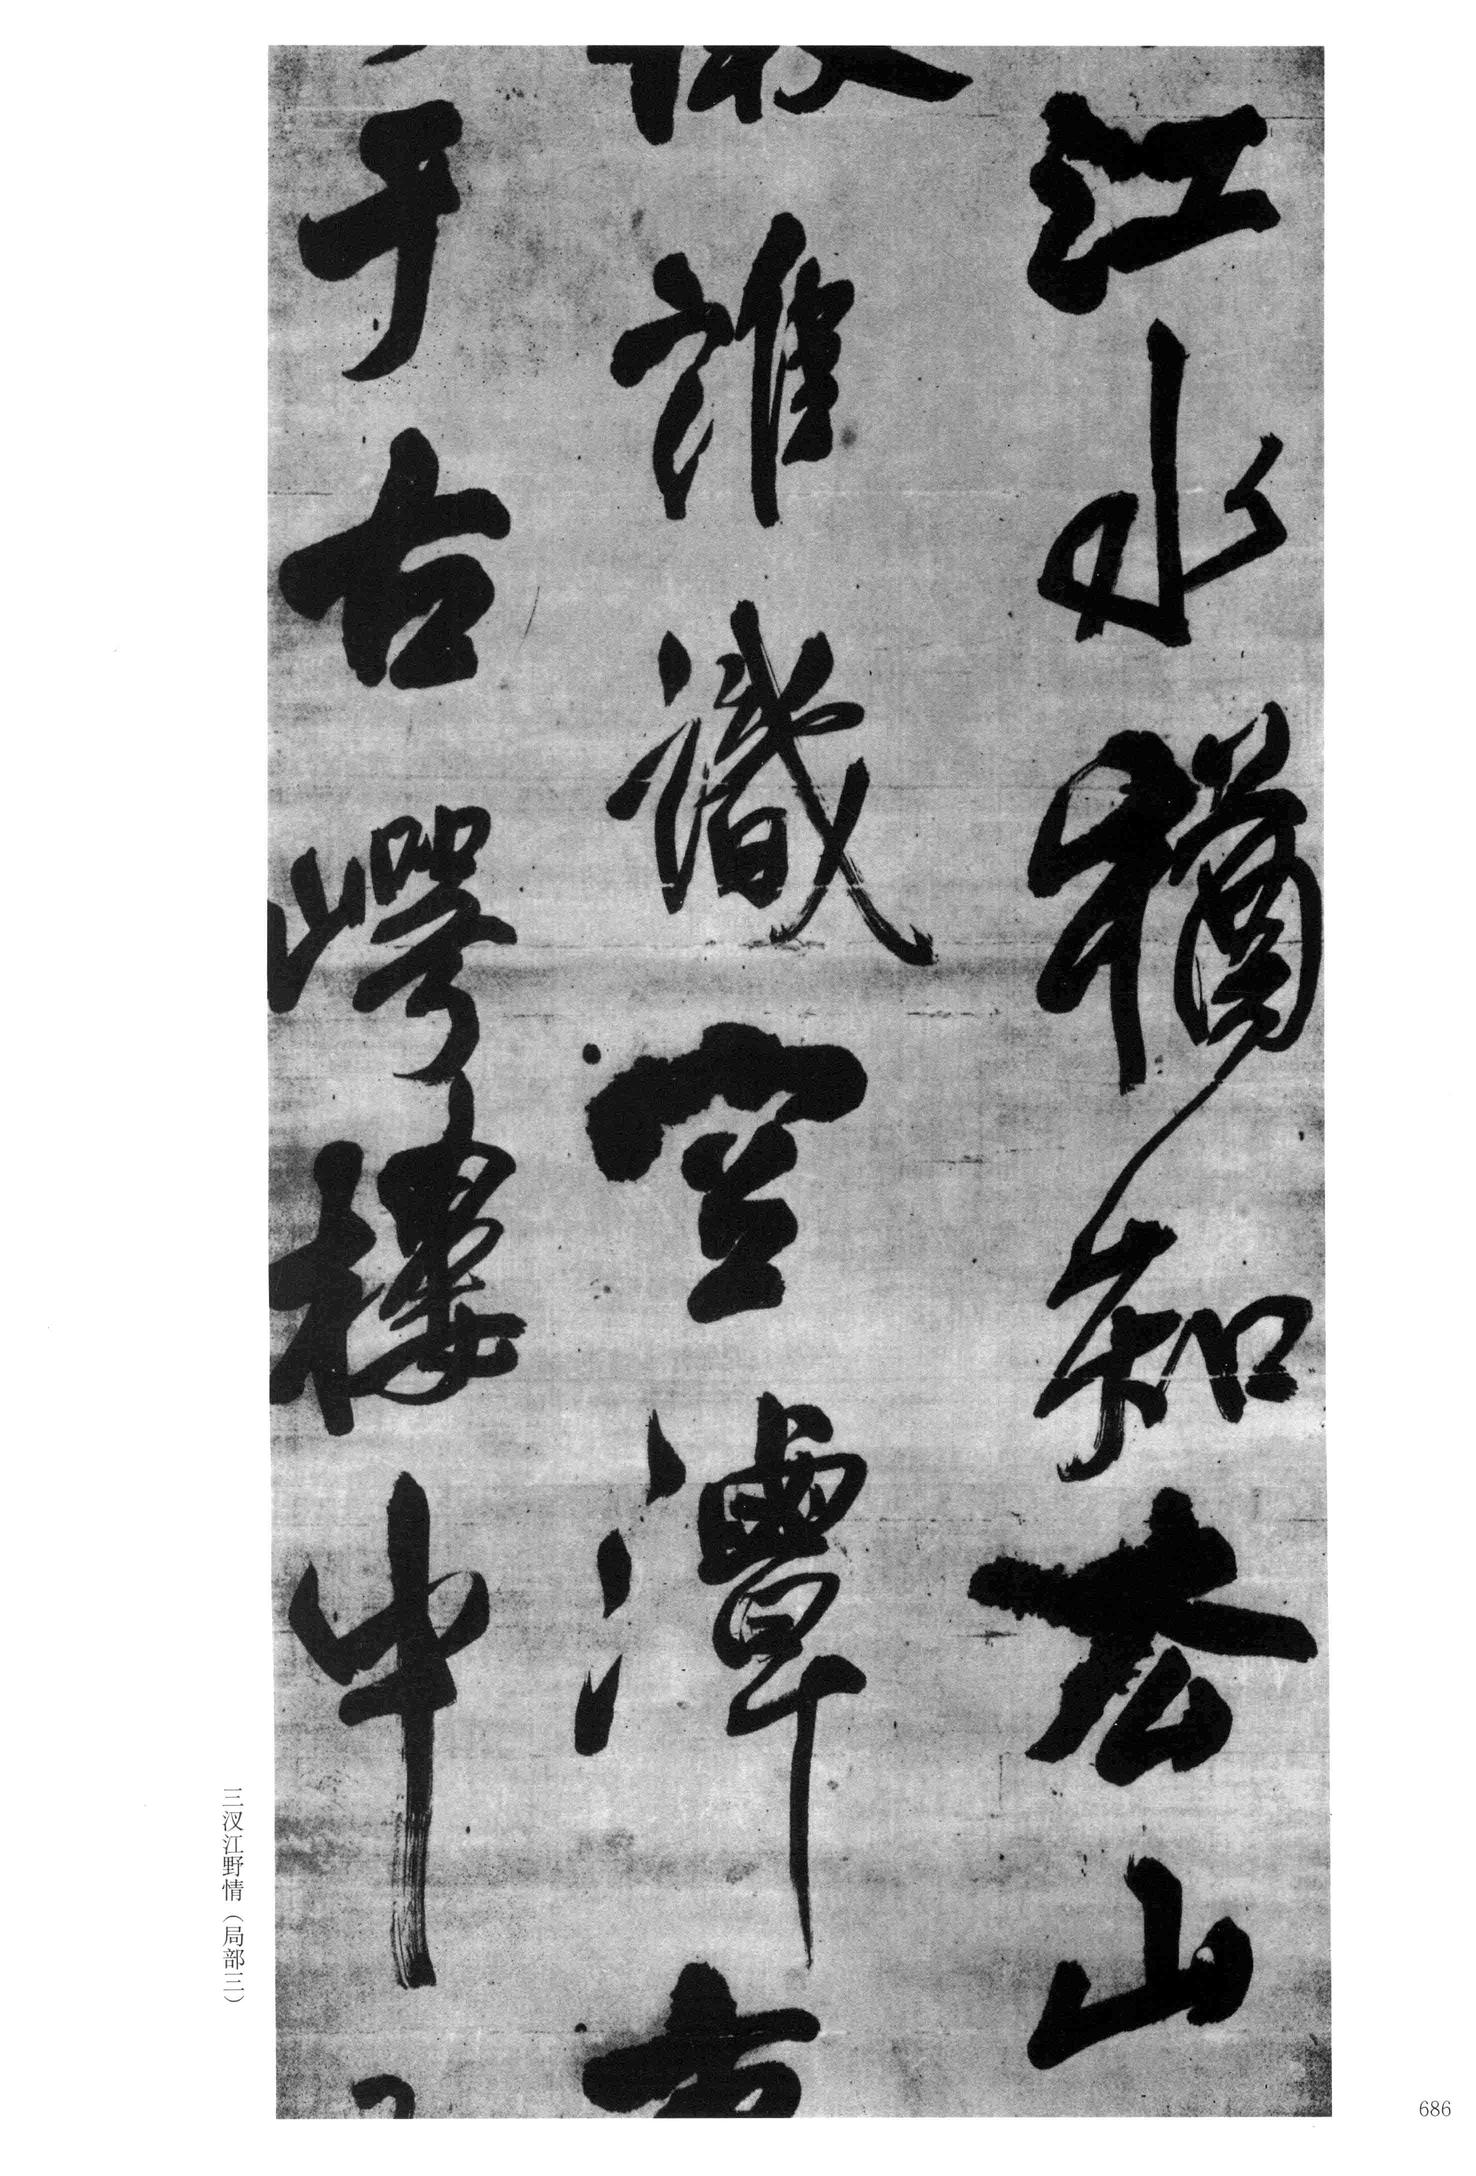 江水猶知去山
誰識空潭
于古崿樓中
三汊江野情（局部三）
686